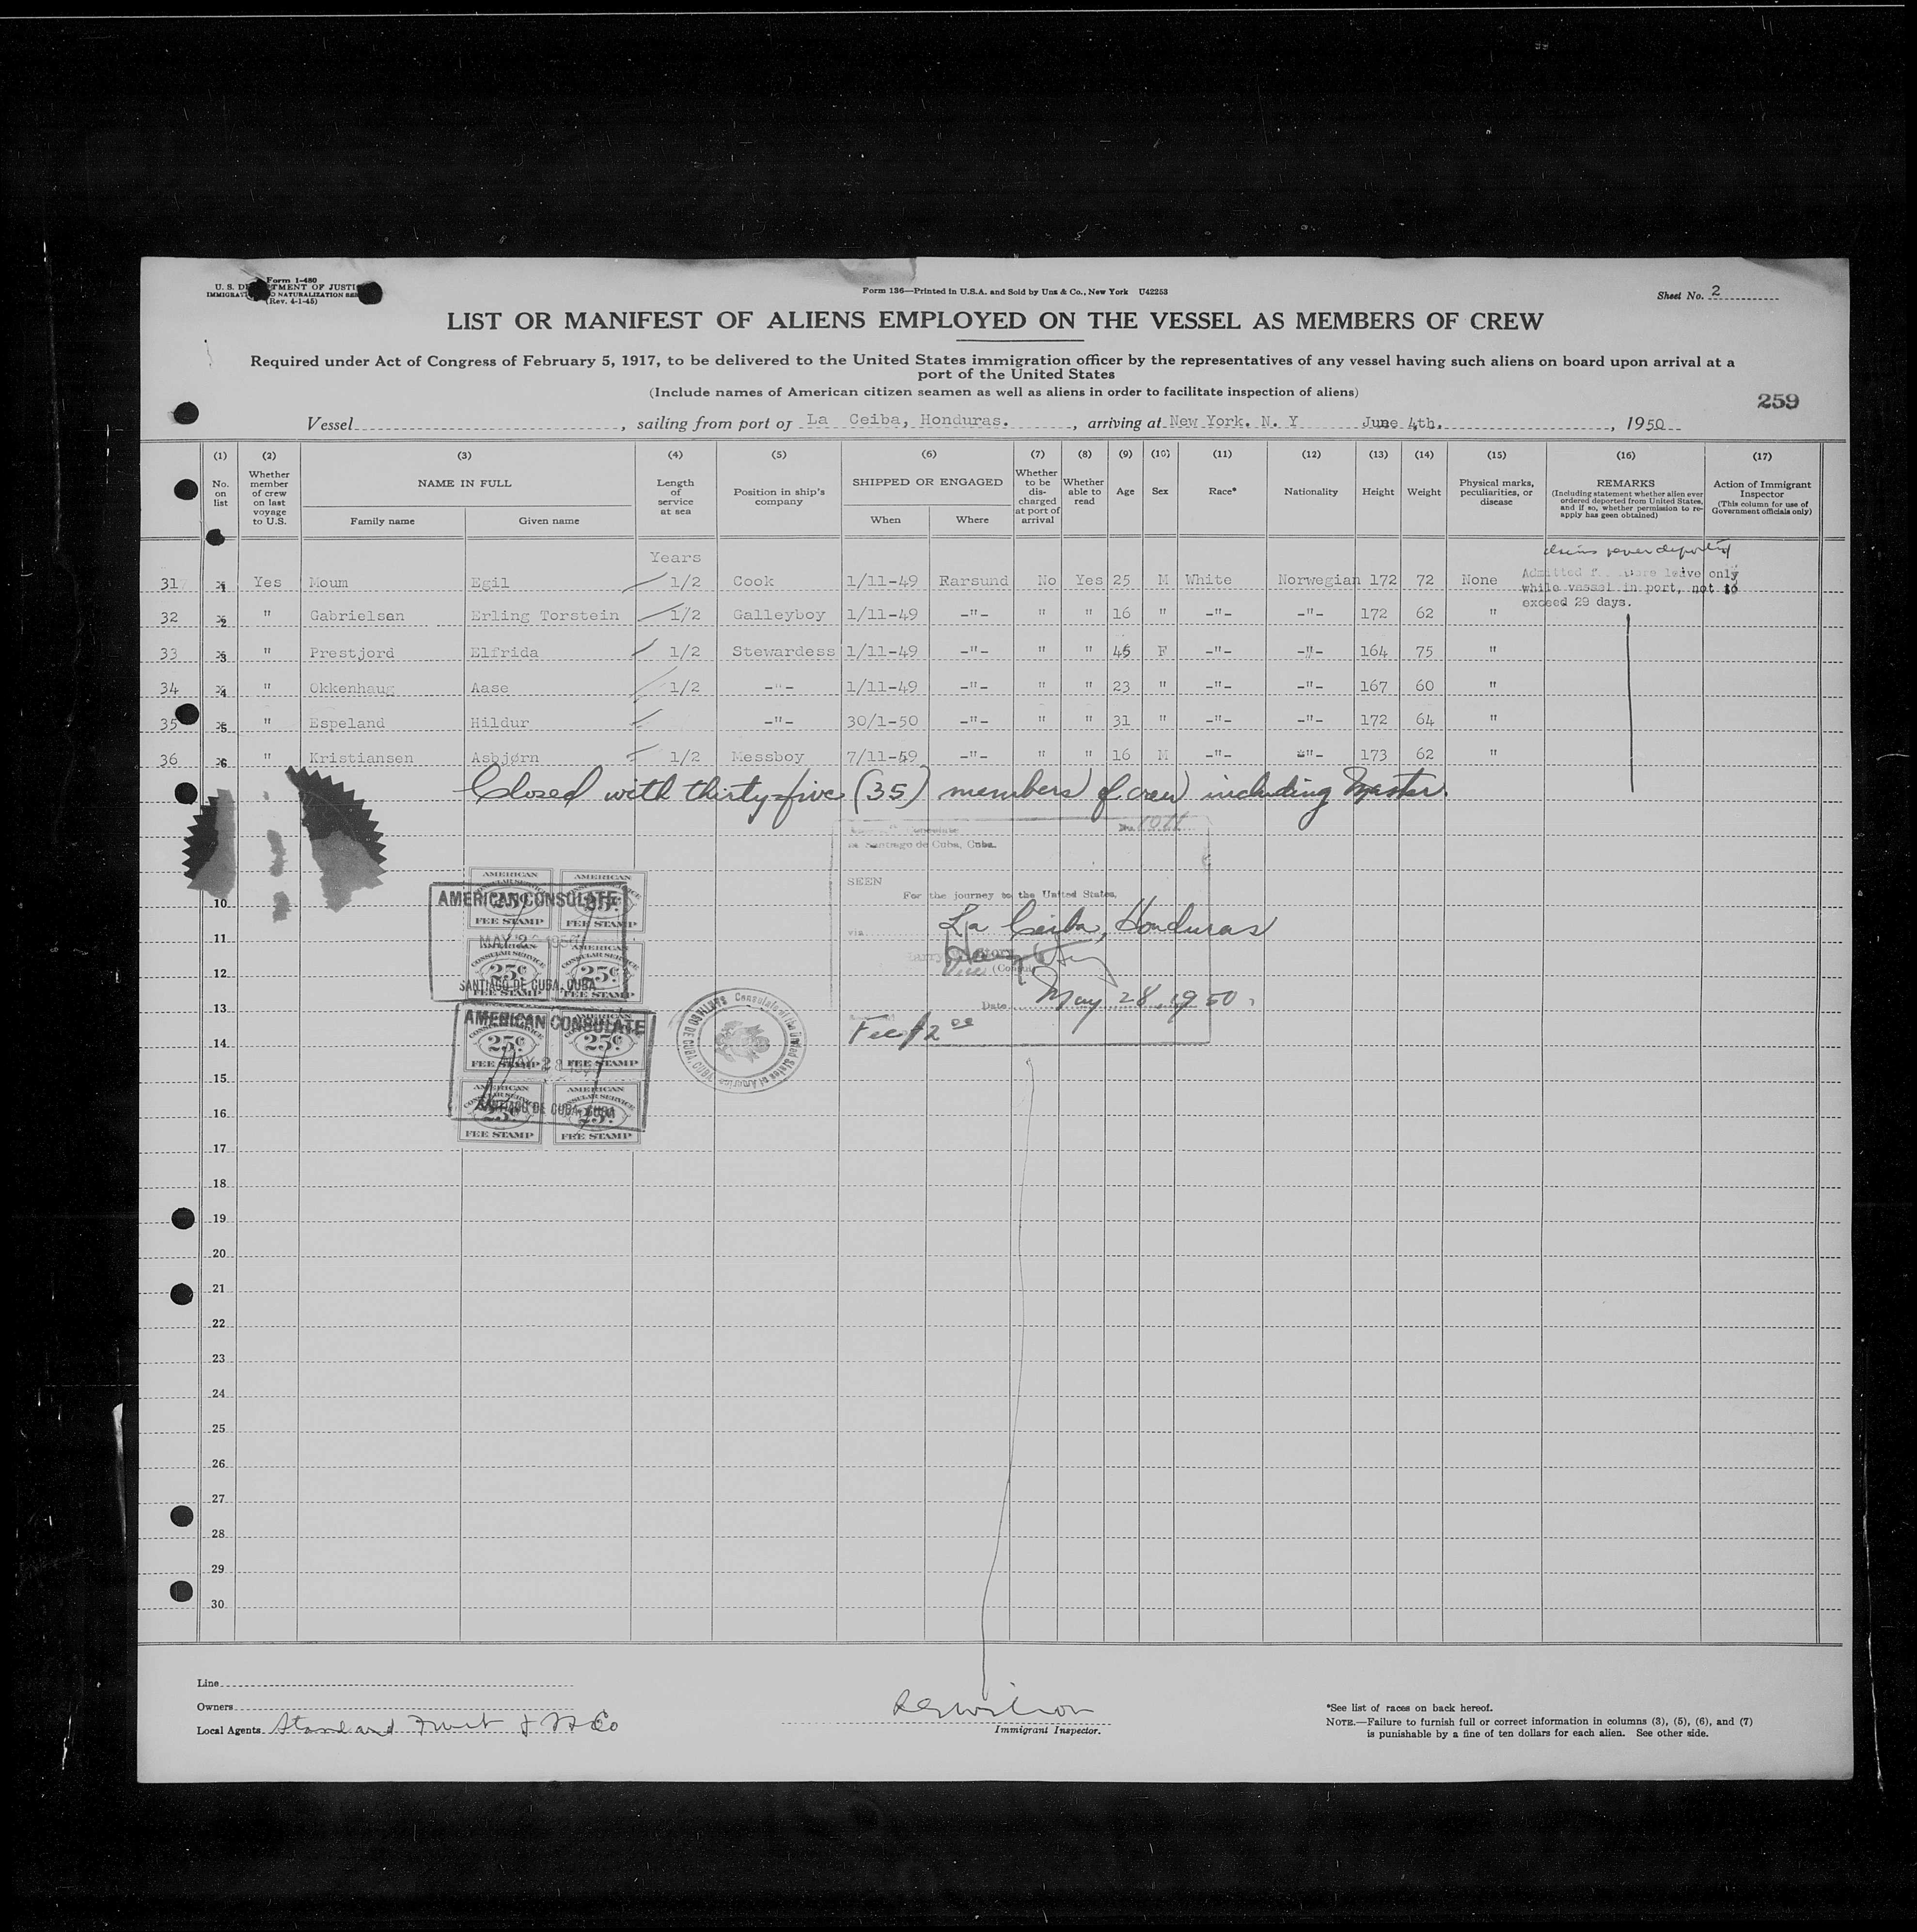 Form 1-480
U. S. DEPARTMENT OF JUSTICE
IMMIGRATION AND NATURALIZATION SERVICE
(Rev. 4-1-45)
Form 136—Printed in U.S.A. and Sold by Unz & Co., New York U42253
Sheet No. 2
LIST OR MANIFEST OF ALIENS EMPLOYED ON THE VESSEL AS MEMBERS OF CREW
Required under Act of Congress of February 5, 1917, to be delivered to the United States immigration officer by the representatives of any vessel having such aliens on board upon arrival at a
port of the United States
(Include names of American citizen seamen as well as aliens in order to facilitate inspection of aliens)
259
Vessel , sailing from port of La Ceiba, Honduras. , arriving at New York. N. Y June 4th. , 1950
(1) (2) (3) (4) (5) (6) (7) (8) (9) (10) (11) (12) (13) (14) (15) (16) (17)
No. on list
Whether member of crew on last voyage to U.S.
NAME IN FULL
Family name Given name
Length of service at sea
Position in ship's company
SHIPPED OR ENGAGED
When Where
Whether to be dis-charged at port of arrival
Whether able to read
Age
Sex
Race*
Nationality
Height
Weight
Physical marks, peculiarities, or disease
REMARKS
(Including statement whether alien ever ordered deported from United States, and if so, whether permission to re-apply has geen obtained)
Action of Immigrant Inspector
(This column for use of Government officials only)
Years
never deported
31 1 Yes Moum Egil 1/2 Cook 1/11-49 Rarsund No Yes 25 M White Norwegian 172 72 None
Admitted leave only
while vessel in port, not to
exceed 29 days.
32 2 " Gabrielsen Erling Torstein 1/2 Galleyboy 1/11-49 -"- " " 16 " -"- -"- 172 62 "
33 3 " Prestjord Elfrida 1/2 Stewardess 1/11-49 -"- " " 45 F -"- -"- 164 75 "
34 4 " Okkenhaug Aase 1/2 -"- 1/11-49 -"- " " 23 " -"- -"- 167 60 "
35 5 " Espeland Hildur -"- 30/1-50 -"- " " 31 " -"- -"- 172 64 "
36 6 " Kristiansen Asbjørn 1/2 Messboy 7/11-59 -"- " " 16 M -"- -"- 173 62 "
Closed with thirty-five (35) members of crew including Master.
Santiago de Cuba, Cuba.
SEEN
For the journey to the United States,
via La Ceiba, Honduras
Vice (Consul
Date May 28, 1950.
Fee $2 00
AMERICAN CONSULAR SERVICE 25¢ FEE STAMP
AMERICAN CONSULATE
MAY 28 1950
SANTIAGO DE CUBA, CUBA
AMERICAN CONSULATE
MAY 28 1950
SANTIAGO DE CUBA, CUBA
Consulate of the United States of America SANTIAGO DE CUBA
10
11
12
13
14
15
16
17
18
19
20
21
22
23
24
25
26
27
28
29
30
Line
Owners
Local Agents Standard Fruit & SS Co
Immigrant Inspector.
*See list of races on back hereof.
NOTE.—Failure to furnish full or correct information in columns (3), (5), (6), and (7)
is punishable by a fine of ten dollars for each alien. See other side.